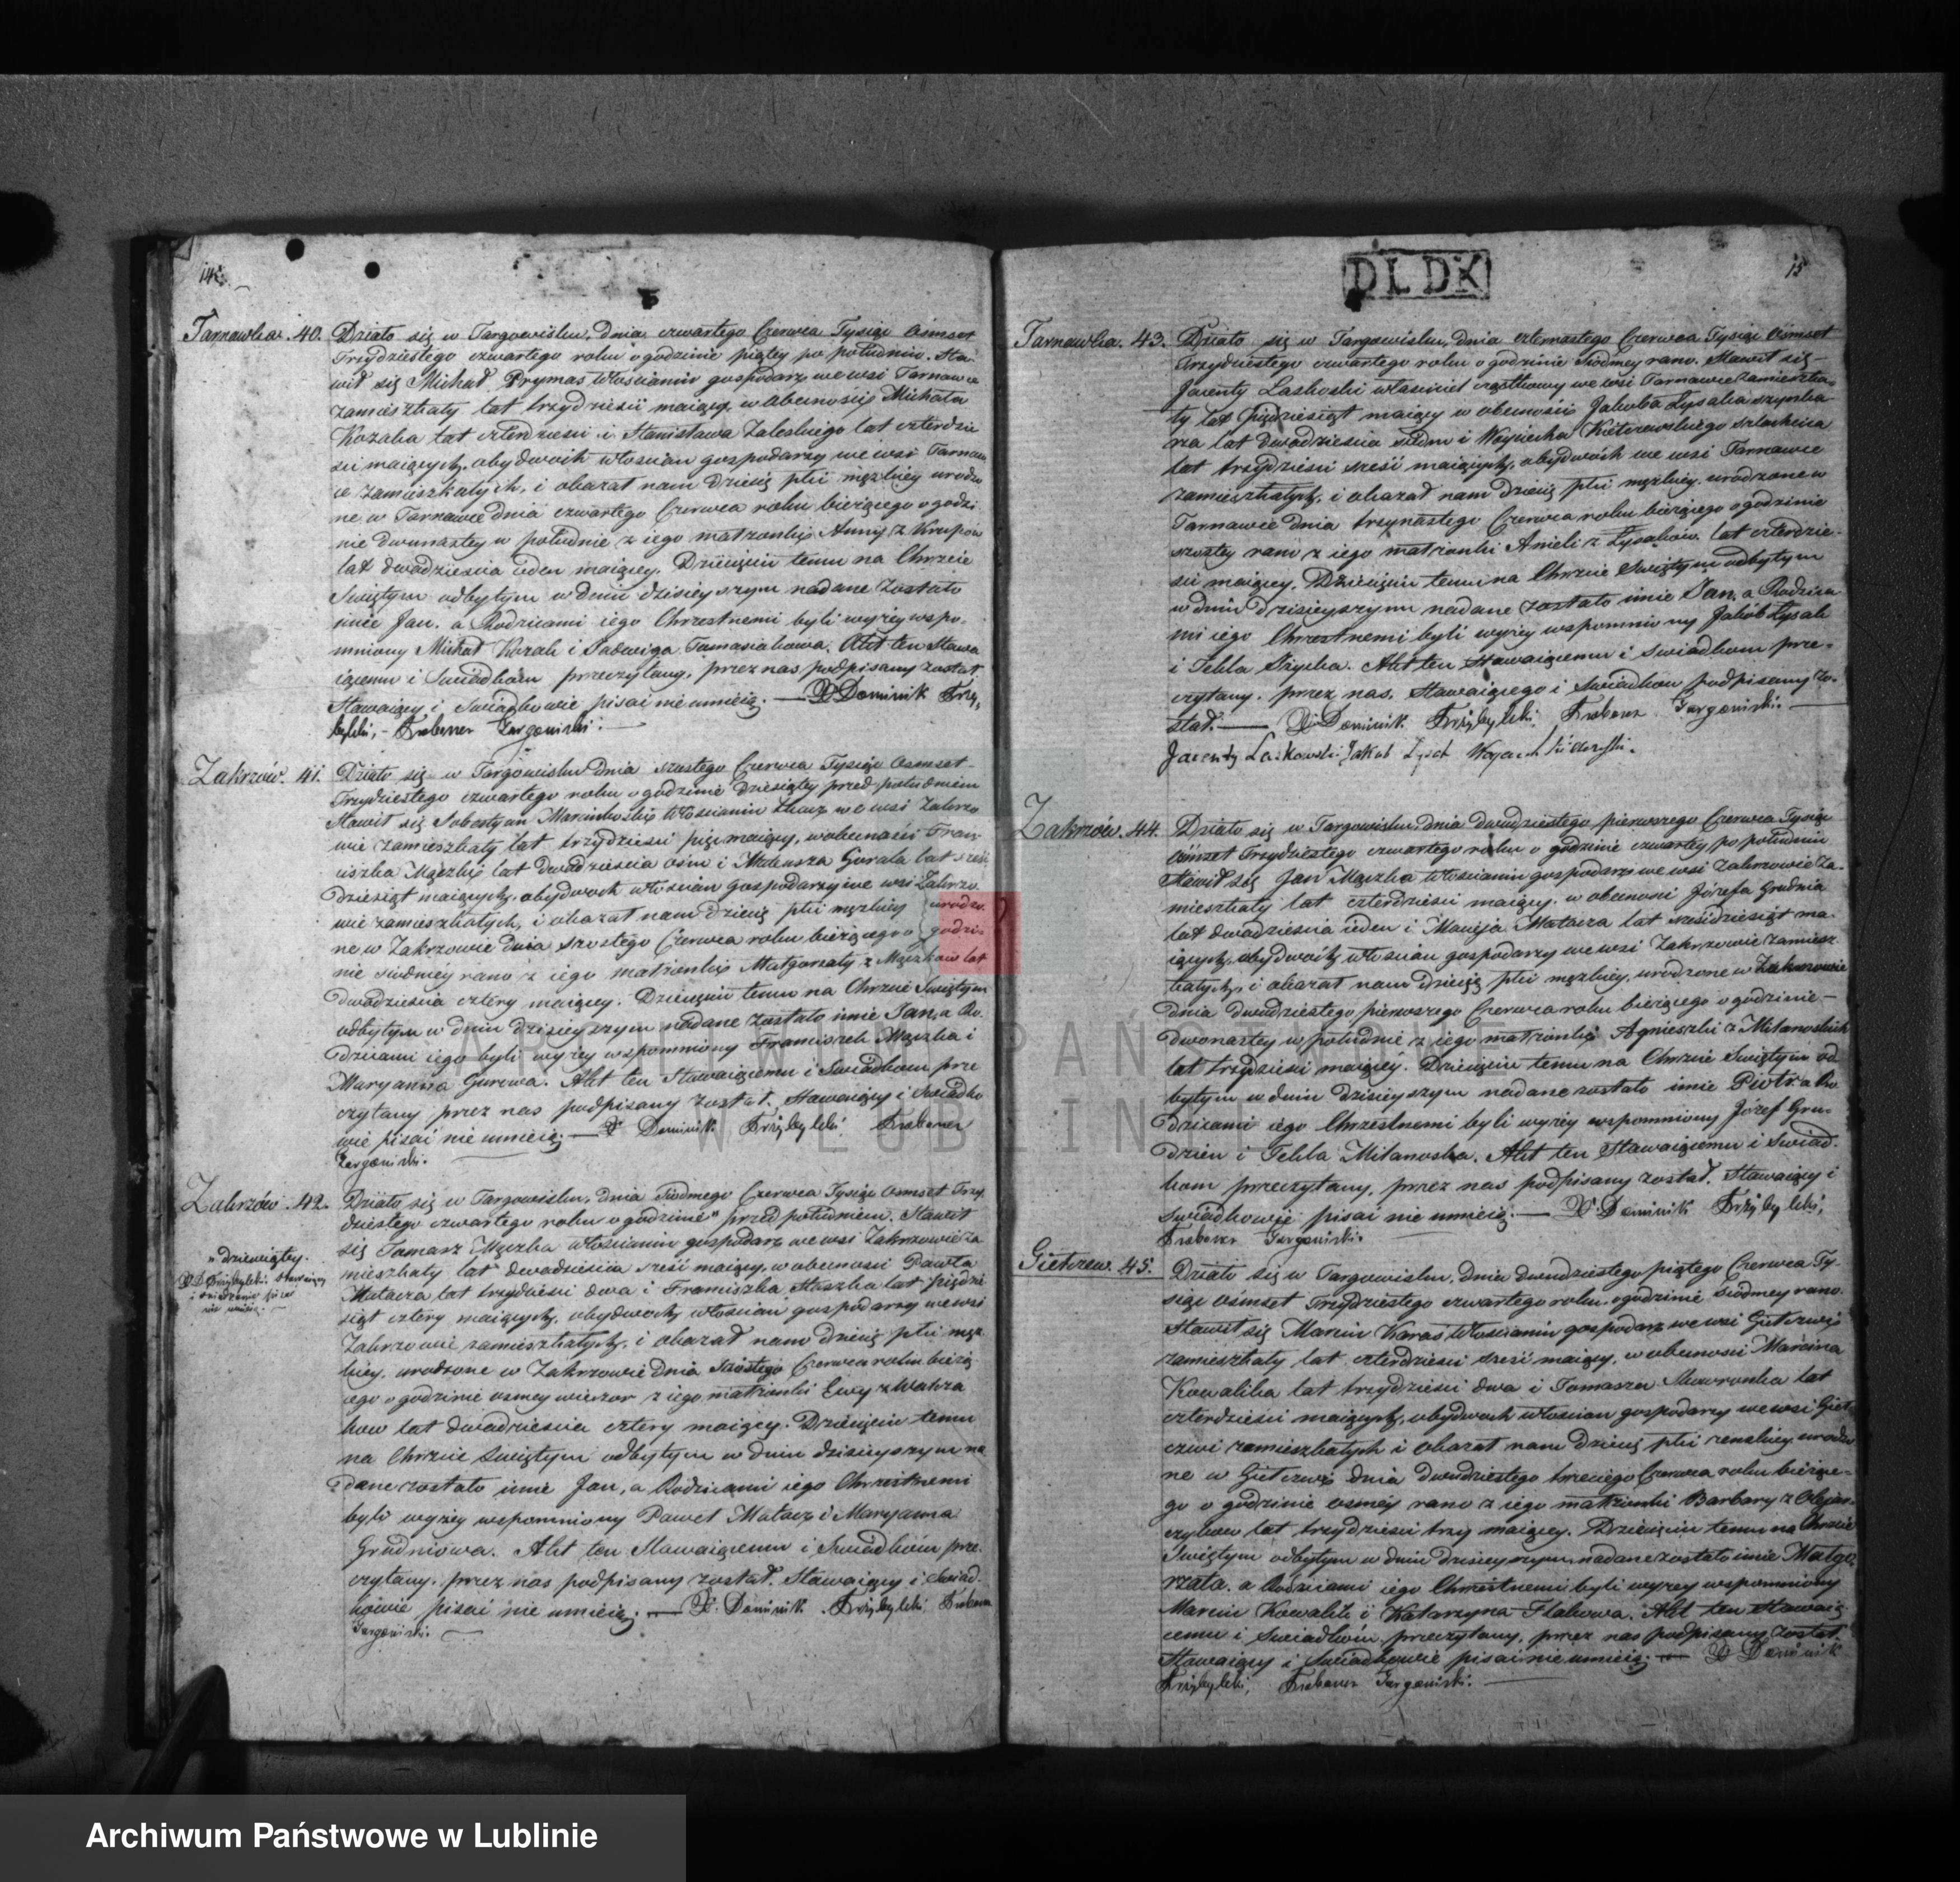 14.
Tarnawka. 40. Działo się w Targowisku, dnia czwartego Czerwca Tysiąc Ośmset
Trzydziestego czwartego roku o godzinie piątey po południu. Sta-
wił się Michał Prymas Włościanin gospodarz we wsi Tarnawce
zamieszkały lat trzydzieści maiący, w obecności Michała
Kozaka lat czterdzieści i Stanisława Zaleskiego lat czterdzie
ści maiących, obydwoch włościan gospodarzy we wsi Tarnaw
ce zamieszkałych, i okazał nam dziecię płci męzkiey urodzo
ne w Tarnawce dnia czwartego Czerwca roku bieżącego o godzi
nie dwunastey w południe z iego małżonki Anny z Krupów
lat dwadzieścia ieden maiącey. Dziecięciu temu na Chrzcie
Swiętym odbytym w dniu dzisieyszym nadane zostało
imie Jan. a Rodzicami iego Chrzestnemi byli wyżey wspo-
mniony Michał Kozak i Jadwiga Tomasiakowa. Akt ten Stawa
iącemu i Swiadkom przeczytany, przez nas podpisany został
Stawaiący i Swiadkowie pisać nie umieią. — X Dominik Trzy
bylski, Proboszcz Targowiski.
Zakrzów. 41. Działo się w Targowisku dnia szostego Czerwca Tysiąc Osmset
Trzydziestego czwartego roku o godzinie dziesiątey przed południem
Stawił się Sobestyan Marcinkoski Włościanin we wsi Zakrzo
wie zamieszkały lat trzydzieści pięć maiący, w obecności Fran
ciszka Mączki lat dwadzieścia ośm i Mateusza Gorala lat sześć
dziesiąt maiących, obydwoch włościan gospodarzy we wsi Zakrzo
wie zamieszkałych, i okazał nam dziecię płci męzkiey urodzo
ne w Zakrzowie dnia szostego Czerwca roku bieżącego o godzi
nie siodmey rano z iego małżonki Małgorzaty z Mączków lat
dwadzieścia cztery maiącey. Dziecięciu temu na Chrzcie Swiętym
odbytym w dniu dzisieyszym nadane zostało imie Jan, a Ro
dzicami iego byli wyżey wspomniony Franciszek Mączka i
Maryanna Gurowa. Akt ten Stawaiącemu i Swiadkom prze
czytany przez nas podpisany został. Stawaiący i Swiadko
wie pisać nie umieią — X Dominik Trzybylski Proboszcz
Targowiski.
Zakrzów. 42. Działo się w Targowisku, dnia Siodmego Czerwca Tysiąc Osmset Trzy
dziestego czwartego roku o godzinie " przed południem. Stawił
się Tomasz Mączka włościanin gospodarz we wsi Zakrzowie za
" dziewiątey.
mieszkały lat dwadzieścia sześć maiący, w obecności Pawła
Matacza lat trzydzieści dwa i Franciszka Staszka lat pięćdzie
siąt cztery maiących, obydwoch włościan gospodarzy we wsi
Zakrzowie zamieszkałych, i okazał nam dziecię płci męz
kiey, urodzone w Zakrzowie dnia szostego Czerwca roku bieżą
cego o godzinie osmey wieczor z iego małżonki Ewy z
kow lat dwadzieścia cztery maiącey. Dziecięciu temu
na Chrzcie Swiętym odbytym w dniu dzisieyszym na
dane zostało imie Jan, a Rodzicami iego Chrzestnemi
byli wyżey wspomniony Paweł Matacz i Maryanna
Grudniowa. Akt ten Stawaiącemu i Swiadkom prze-
czytany, przez nas podpisany został. Stawaiący i Swiad-
kowie pisać nie umieią. — X. Dominik Trzybylski, Proboszcz
Targowiski.
DLDK
15
Tarnawka. 43. Działo się w Targowisku, dnia czternastego Czerwca Tysiąc Ośmset
Trzydziestego czwartego roku o godzinie siodmey rano. Stawił się
Jacenty Laskoski właściciel cząstkowy we wsi Tarnawce zamieszka-
ły lat pięćdziesiąt maiący w obecności Jakoba Łysaka szynka
rza lat dwadzieścia siedm i Woyciecha szlachcica
lat trzydzieści sześć maiących, obydwóch we wsi Tarnawce
zamieszkałych, i okazał nam dziecię płci męzkiey, urodzone w
Tarnawce dnia trzynastego Czerwca roku bieżącego o godzinie
szostey rano z iego małżonki Anieli z Łysaków, lat czterdzie-
ści maiącey. Dziecięciu temu na Chrzcie Swiętym odbytym
w dniu dzisieyszym nadane zostało imie Jan, a Rodzica
mi iego Chrzestnemi byli wyżey wspomniony Jakób Łysak
i Tekla. Akt ten Stawaiącemu i Swiadkom prze-
czytany, przez nas, Stawaiącego i Swiadkow podpisany zo-
stał. — X Dominik Trzybylski, Proboszcz Targowiski.
Jacenty Laskowski Jakob
Zakrzów. 44. Działo się w Targowisku, dnia dwudziestego pierwszego Czerwca Tysiąc
Ośmset Trzydziestego czwartego roku o godzinie czwartey po południu
Stawił się Jan Mączka Włościanin gospodarz we wsi Zakrzowie za-
mieszkały lat czterdzieści maiący, w obecności Józefa Grudnia
lat dwadzieścia ieden i Macieja Matacza lat sześćdziesiąt ma-
iących, obydwóch włościan gospodarzy we wsi Zakrzowie zamiesz
kałych, i okazał nam dziecię płci męzkiey, urodzone w Zakrzowie
dnia dwudziestego pierwszego Czerwca roku bieżącego o godzinie
dwonastey w południe z iego małżonki Agnieszki z Milanoskich
lat trzydzieści maiącey. Dziecięciu temu na Chrzcie Swiętym od
bytym w dniu dzisieyszym nadane zostało imie Piotr a Ro
dzicami iego Chrzestnemi byli wyżey wspomniony Józef Gru-
dzien i Tekla Milanoska. Akt ten Stawaiącemu i Swiad-
kom przeczytany, przez nas podpisany został. Stawaiący i
Swiadkowie pisać nie umieią. — X. Dominik Trzybylski,
Proboszcz Targowiski.
45. Działo się w Targowisku, dnia dwudziestego piątego Czerwca Ty-
siąc Ośmset Trzydziestego czwartego roku, o godzinie siodmey rano.
Stawił się Marcin Karaś Włościanin gospodarz we wsi
zamieszkały lat czterdzieści sześć maiący, w obecności Marcina
Kowalika lat trzydzieści dwa i Tomasza Skowronka lat
czterdzieści maiących, obydwoch włościan gospodarzy we wsi
zamieszkałych i okazał nam dziecię płci zenskiey urodzo
ne w dnia dwudziestego trzeciego Czerwca roku bieżące-
go o godzinie osmey rano z iego małżonki Barbary z
lat trzydzieści trzy maiącey. Dziecięciu temu na Chrzcie
Swiętym odbytym w dniu dzisieyszym nadane zostało imie Małgo
rzata, a Rodzicami iego Chrzestnemi byli wyżey wspomniony
Marcin Kowalik i Katarzyna Flakowa. Akt ten Stawaią
cemu i Swiadkom przeczytany, przez nas podpisany został.
Stawaiący i Swiadkowie pisać nie umieią. — X Dominik
Trzybylski, Proboszcz Targowiski.
ARCHIWUM PAŃSTWOWE
W LUBLINIE
Archiwum Państwowe w Lublinie